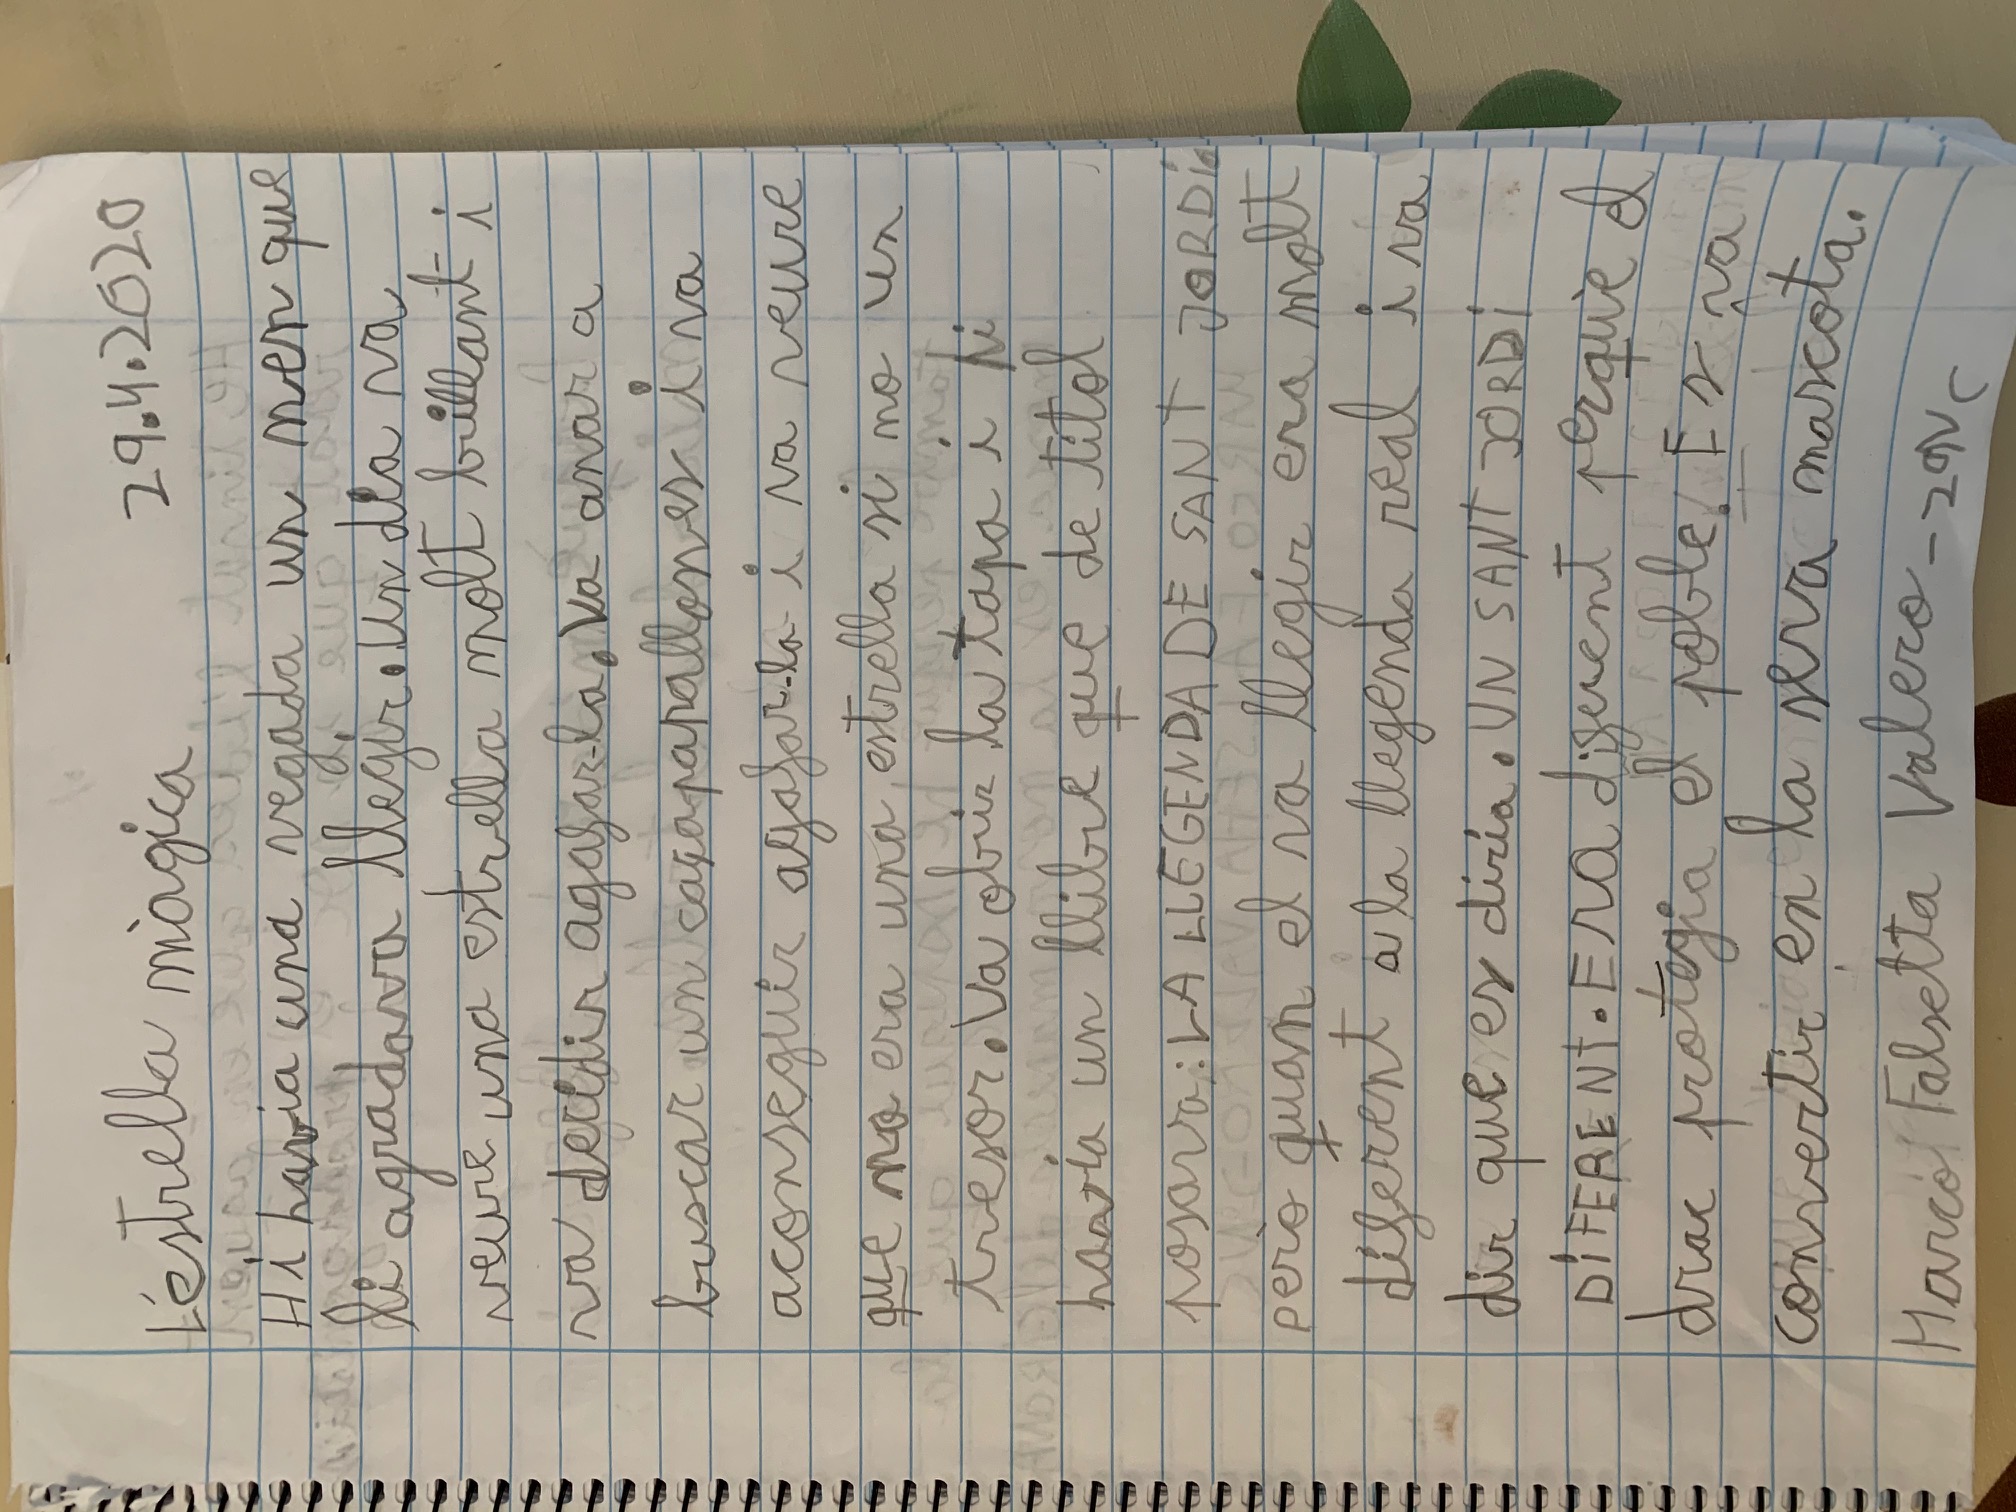 29.4.2020
L'éstrella màgica
Hi havia una vegada un nen que
li agradava llegir. Un dia va
veure una estrella molt brillant i
va decidir agagar-la. Va anar a
buscar un caçapapallones i va
aconseguir agafar-la i va veure
que no era una estrella si no un
tresor. Va obrir la tapa i hi
havia un llibre que de titol
posava: LA LLEGENDA DE SANT JORDI
pero quan el va llegir era molt
diferent a la llegenda real i va
dir que es diria. UN SANT JORDI
DIFERENT. Era diferent perquie el
drac protegia el poble. Es va
convertir en la seva mascota.
Marcó Falseta Valero - 2ON C